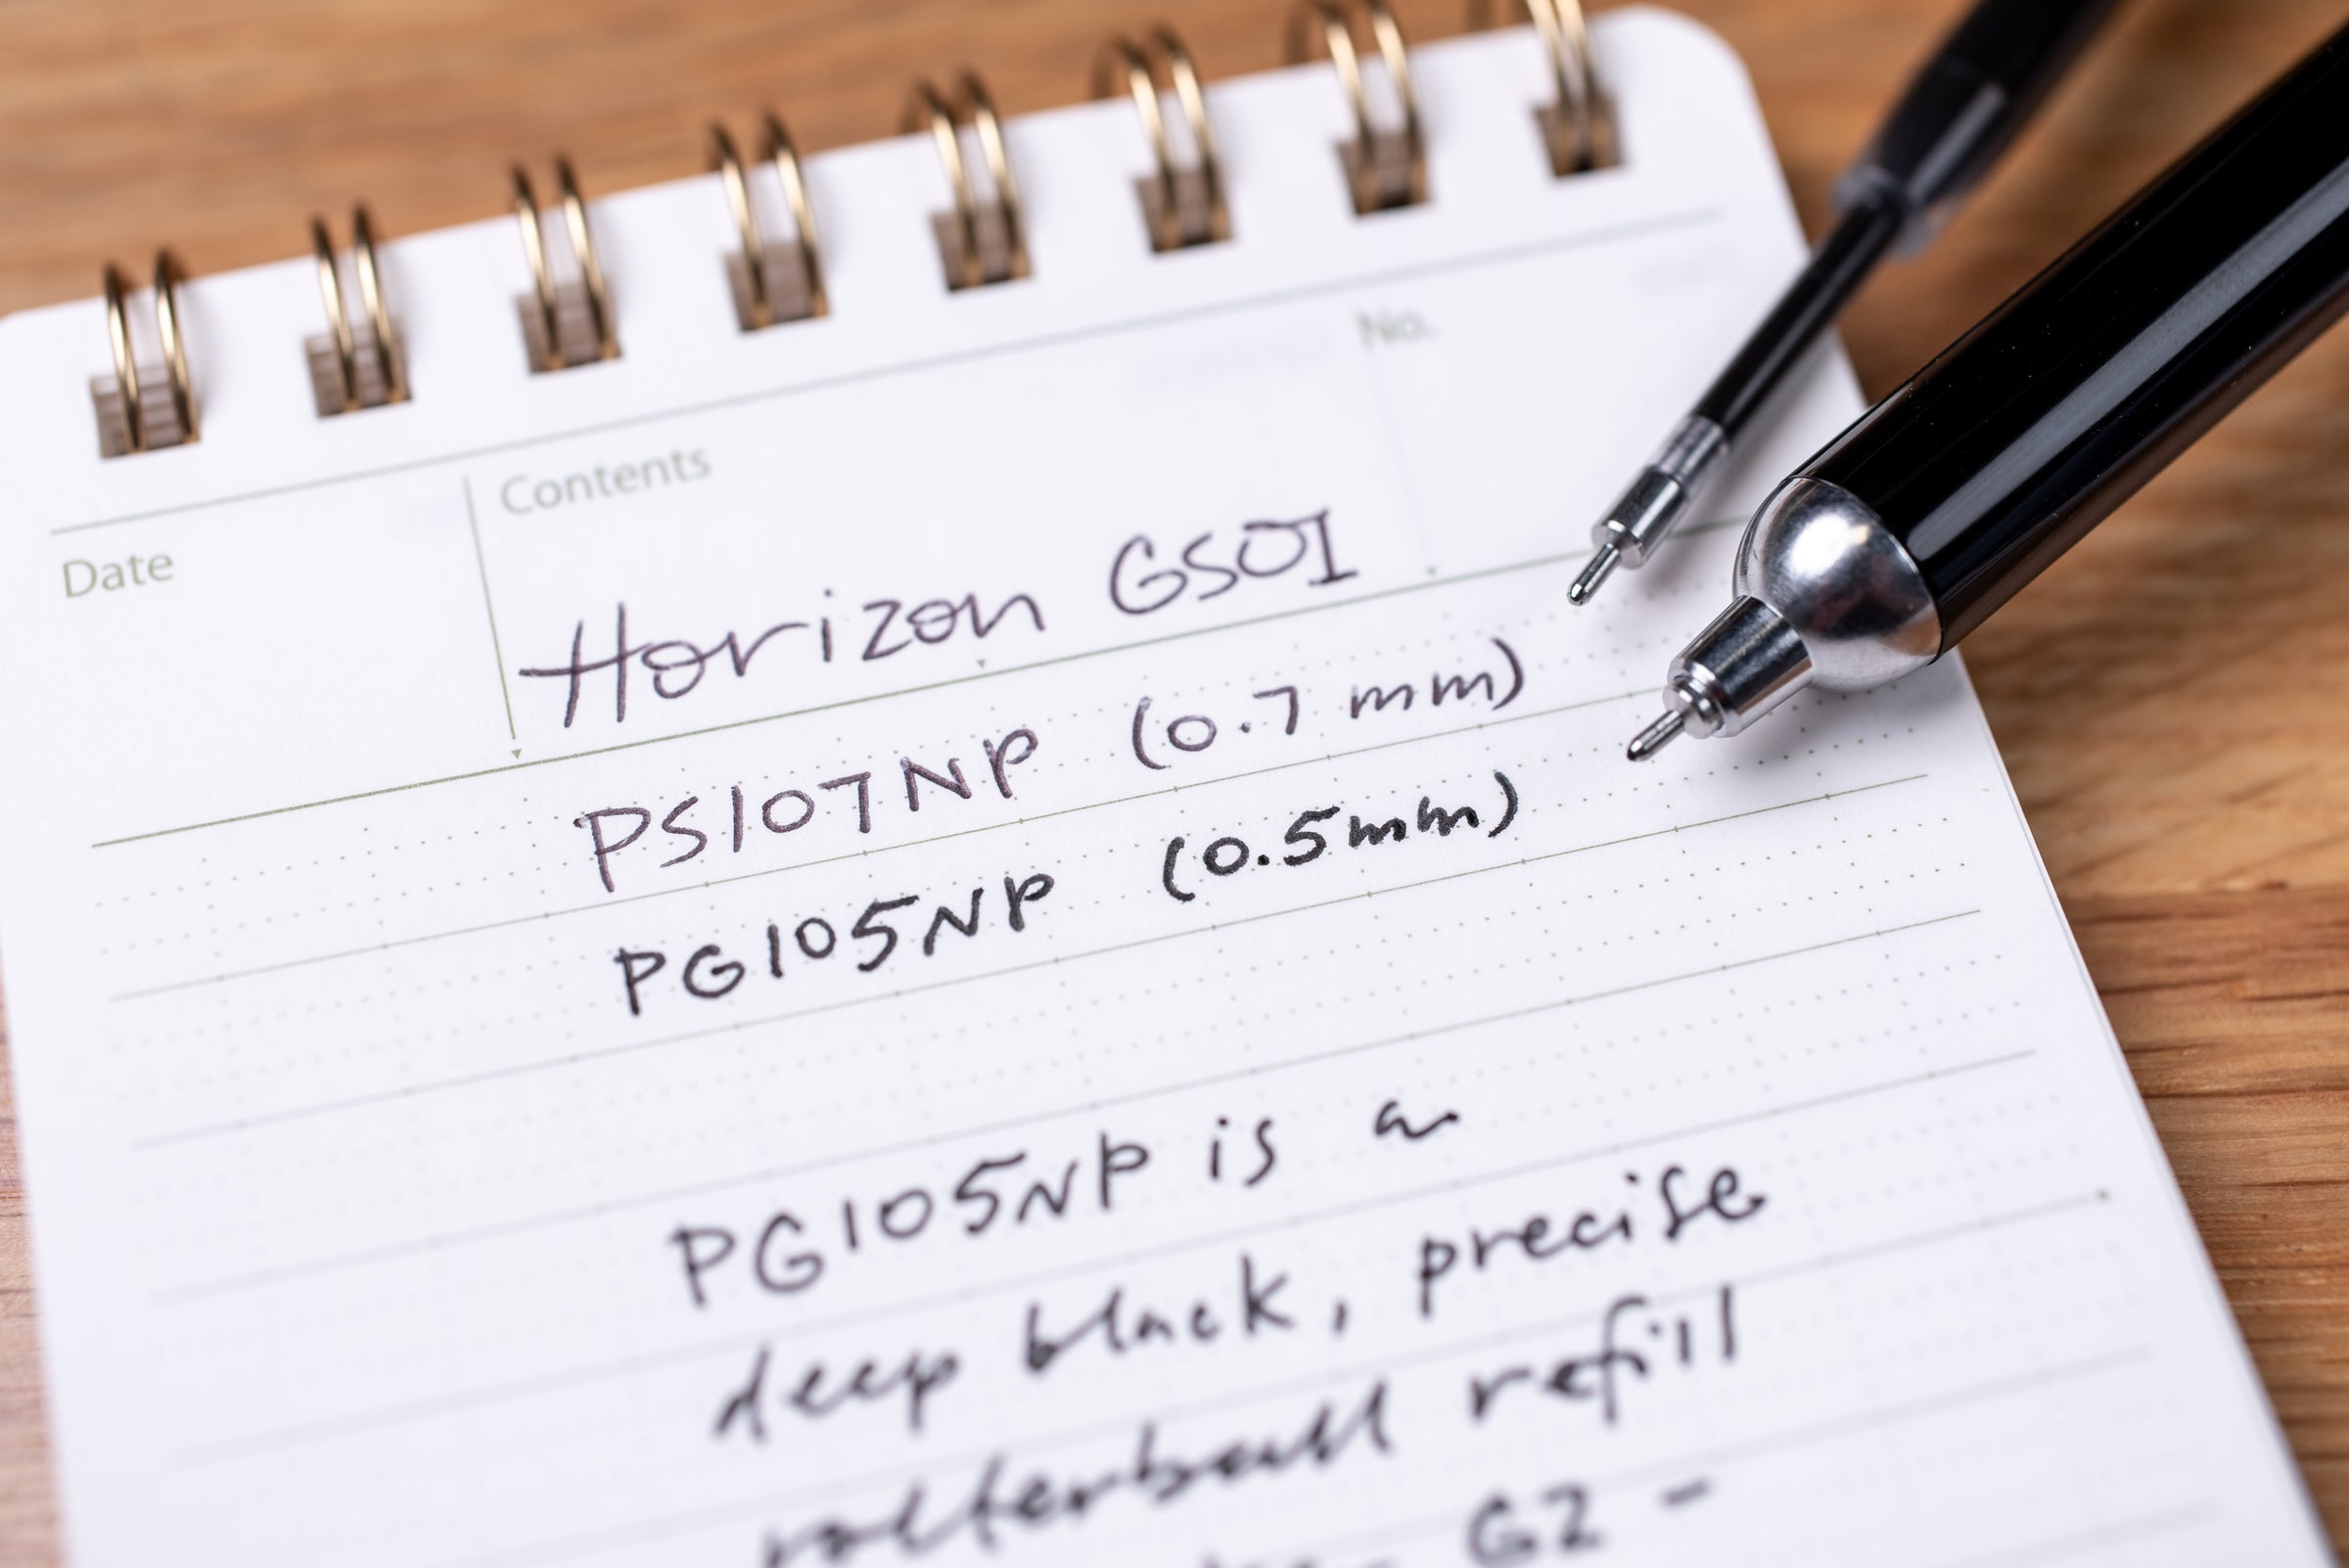 No.
Contents
Date
Horizon GS01
PS107NP (0.7 mm)
PG105NP (0.5mm)
PG105NP is a
deep black, precise
rollerball refill
G2 -